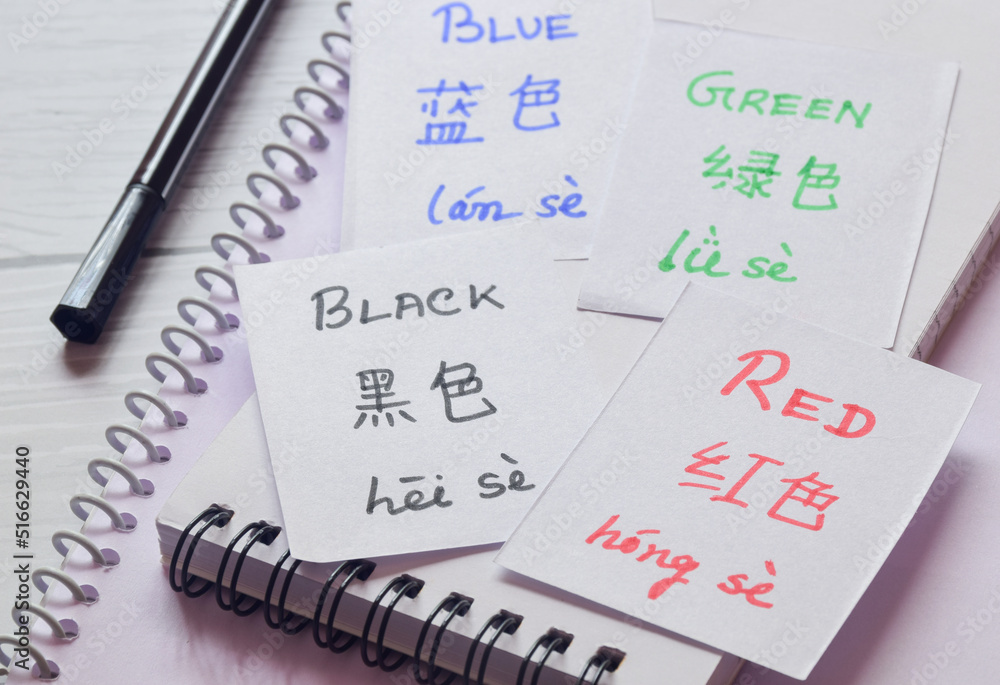 BLUE
蓝色
lán sè
GREEN
绿色
lǜ sè
BLACK
黑色
hēi sè
RED
红色
hóng sè
Adobe Stock | #516629440